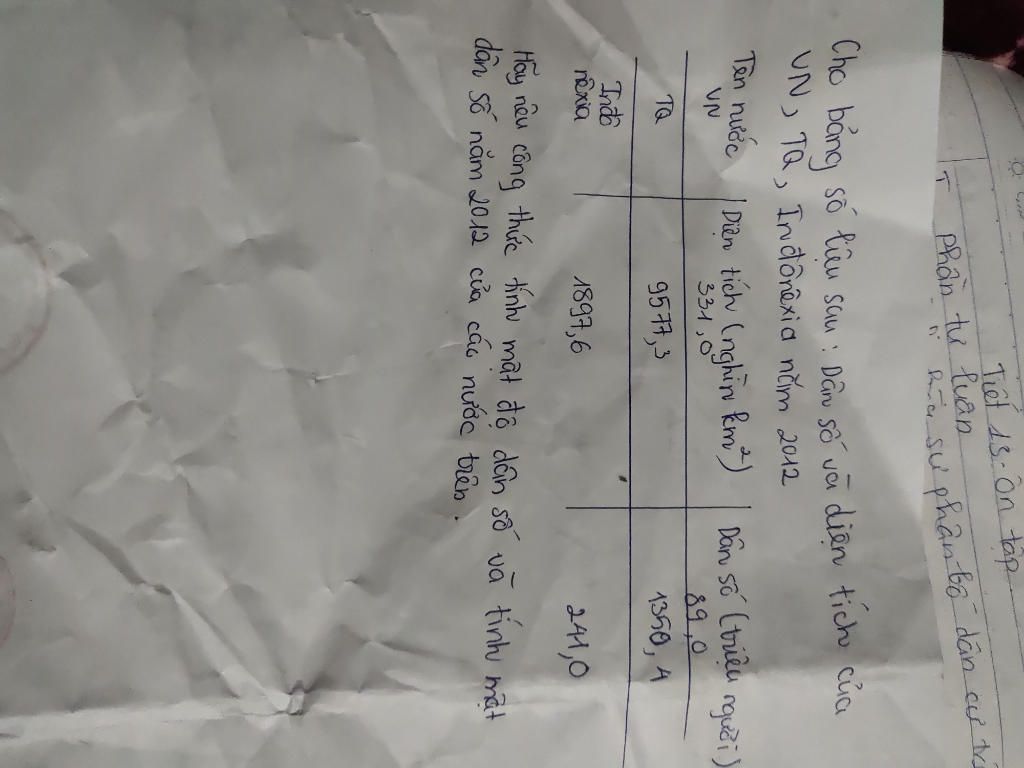 Tiết 13 - ôn tập
I phần tự luận
sự phân bố dân cư
Cho bảng số liệu sau: Dân số và diện tích của
VN, TQ, Inđônêxia năm 2012
Tên nước Diện tích (nghìn km²) Dân số (triệu người)
VN 331,0 89,0
TQ 9577,3 1350,4
Inđô 1897,6 241,0
nêxia
Hãy nêu công thức tính mật độ dân số và tính mật
dân số năm 2012 của các nước trên.